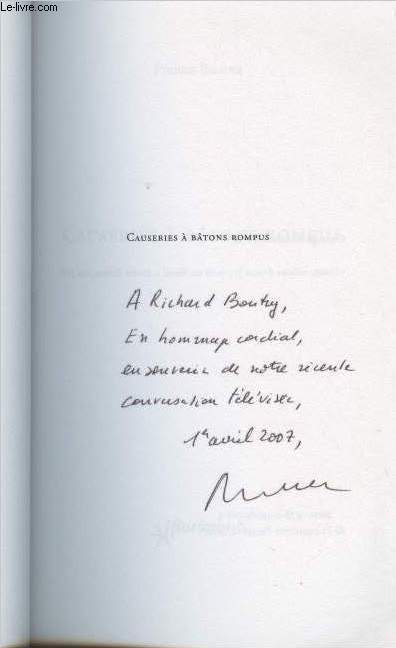 Le-livre.com
CAUSERIES À BÂTONS ROMPUS
A Richard Boutry,
En hommage cordial,
en souvenir de notre récente
conversation télévisée,
1er avril 2007,